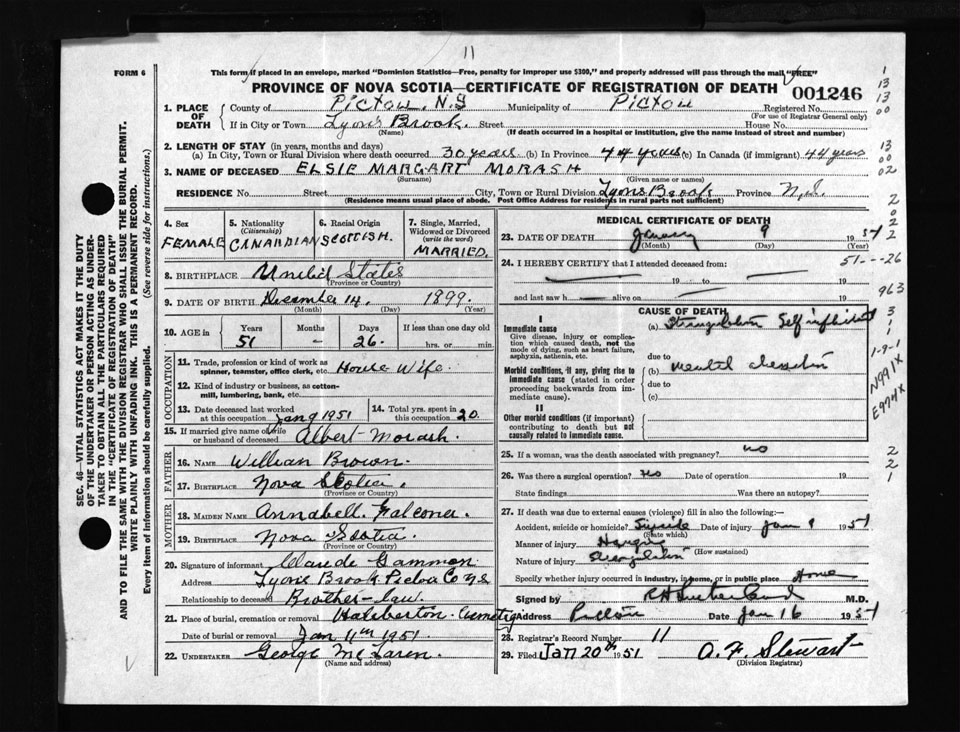 11
FORM 6
This form if placed in an envelope, marked "Dominion Statistics—Free, penalty for improper use $300," and properly addressed will pass through the mail "FREE"
PROVINCE OF NOVA SCOTIA—CERTIFICATE OF REGISTRATION OF DEATH 001246
1. PLACE OF DEATH County of Pictou, N.S Municipality of Pictou Registered No.
(For use of Registrar General only)
If in City or Town Lyons Brook. Street House No.
(Name) (If death occurred in a hospital or institution, give the name instead of street and number)
2. LENGTH OF STAY (in years, months and days)
(a) In City, Town or Rural Division where death occurred 30 years (b) In Province 44 years (c) In Canada (if immigrant) 44 years
3. NAME OF DECEASED ELSIE MARGART MORASH
(Surname) (Given name or names)
RESIDENCE No. Street City, Town or Rural Division Lyons Brook Province N.S.
(Residence means usual place of abode. Post Office Address for residents in rural parts not sufficient)
4. Sex FEMALE
5. Nationality (Citizenship) CANAHDIAN
6. Racial Origin SCOTTISH.
7. Single, Married, Widowed or Divorced (write the word) MARRIED.
8. BIRTHPLACE United States
(Province or Country)
9. DATE OF BIRTH December 14, 1899.
(Month) (Day) (Year)
10. AGE in Years Months Days If less than one day old
51 – 26. hrs. or min.
OCCUPATION
11. Trade, profession or kind of work as spinner, teamster, office clerk, etc. House Wife.
12. Kind of industry or business, as cotton-mill, lumbering, bank, etc.
13. Date deceased last worked at this occupation Jan 9 1951
14. Total yrs. spent in this occupation 20.
15. If married give name of wife or husband of deceased Albert Morash.
FATHER
16. NAME William Brown.
17. BIRTHPLACE Nova Scotia.
(Province or Country)
MOTHER
18. MAIDEN NAME Annabell Falconer.
19. BIRTHPLACE Nova Scotia.
(Province or Country)
20. Signature of informant Claude Gammon
Address Lyons Brook Pictou Co NS
Relationship to deceased Brother-law
21. Place of burial, cremation or removal Haliberton Cemetry
Date of burial or removal Jan 11th 1951.
22. UNDERTAKER George McLaren.
(Name and address)
MEDICAL CERTIFICATE OF DEATH
23. DATE OF DEATH January 9 1951
(Month) (Day) (Year)
24. I HEREBY CERTIFY that I attended deceased from:
19 to 19
and last saw h alive on 19
CAUSE OF DEATH
I
Immediate cause
Give disease, injury or complication which caused death, not the mode of dying, such as heart failure, asphyxia, asthenia, etc.
(a) Strangulation Self inflicted
due to
Morbid conditions, if any, giving rise to immediate cause (stated in order proceeding backwards from immediate cause).
(b) mental
due to
(c)
II
Other morbid conditions (if important) contributing to death but not causally related to immediate cause.
25. If a woman, was the death associated with pregnancy? no
26. Was there a surgical operation? no Date of operation 19
State findings Was there an autopsy?
27. If death was due to external causes (violence) fill in also the following:—
Accident, suicide or homicide? Suicide Date of injury Jan 9 1951
(State which)
Manner of injury Hanging
(How sustained)
Nature of injury Strangulation
Specify whether injury occurred in industry, in home, or in public place Home
Signed by R H Sutherland M.D.
Address Pictou Date Jan 16 1951
28. Registrar's Record Number 11
29. Filed Jan 20th 1951 A. F. Stewart
(Division Registrar)
SEC. 46—VITAL STATISTICS ACT MAKES IT THE DUTY
OF THE UNDERTAKER OR PERSON ACTING AS UNDER-
TAKER TO OBTAIN ALL THE PARTICULARS REQUIRED
IN THE "CERTIFICATE OF REGISTRATION OF DEATH"
AND TO FILE THE SAME WITH THE DIVISION REGISTRAR WHO SHALL ISSUE THE BURIAL PERMIT.
WRITE PLAINLY WITH UNFADING INK. THIS IS A PERMANENT RECORD.
Every item of Information should be carefully supplied. (See reverse side for instructions.)
1
13
13
00
13
00
02
2
0
2
2
51---26
963
3
1
1
1-9-1
N991X
E974X
2
2
1